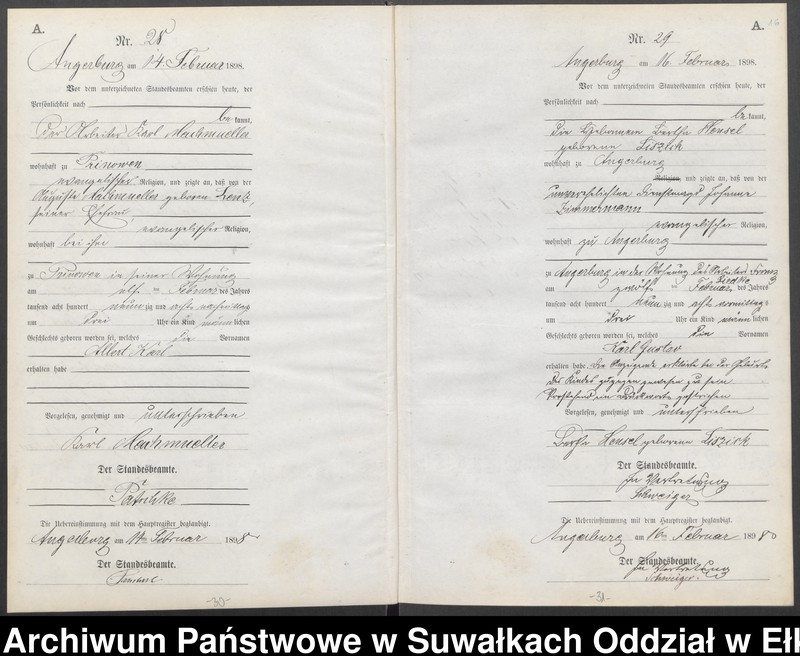 A.
Nr. 28
Angerburg am 14 Februar 1898.
Vor dem unterzeichneten Standesbeamten erschien heute, der
Persönlichkeit nach
be kannt,
der Arbeiter Karl
wohnhaft zu Prinowen
evangelischer Religion, und zeigte an, daß von der
Auguste geboren
seiner Ehefrau
evangelischer Religion,
wohnhaft bei ihm
zu Prinowen in seiner Wohnung
am elf ten Februar des Jahres
tausend acht hundert neun zig und acht nachmittags
um drei Uhr ein Kind männlichen
Geschlechts geboren worden sei, welches die Vornamen
Albert Karl
erhalten habe
Vorgelesen, genehmigt und unterschrieben
Karl Machmueller
Der Standesbeamte.
Die Uebereinstimmung mit dem Hauptregister beglaubigt.
Angerburg am 14ten Februar 1898
Der Standesbeamte.
-30-
A.
16
Nr. 29
Angerburg am 16 Februar 1898.
Vor dem unterzeichneten Standesbeamten erschien heute, der
Persönlichkeit nach
be kannt,
die Hebamme Bertha Hensel
geborene Liszick
wohnhaft zu Angerburg
Religion, und zeigte an, daß von der
unverehelichten Dienstmagd Johanne
Zimmermann
evangelischer Religion,
wohnhaft zu Angerburg
zu Angerburg in der Wohnung des
am zwölf ten Februar des Jahres
tausend acht hundert neun zig und acht vormittags
um drei Uhr ein Kind männlichen
Geschlechts geboren worden sei, welches die Vornamen
Karl Gustav
erhalten habe. Die Anzeigende erklärte bei der Geburt
des Kindes zugegen gewesen zu sein
Vorstehend ein Druckwort gestrichen
Vorgelesen, genehmigt und unterschrieben
Bertha Hensel geborene Liszick
Der Standesbeamte.
In Vertretung
Schweiger
Die Uebereinstimmung mit dem Hauptregister beglaubigt.
Angerburg am 16ten Februar 1898
Der Standesbeamte.
In Vertretung
Schweiger
-31-
Archiwum Państwowe w Suwałkach Oddział w Eł